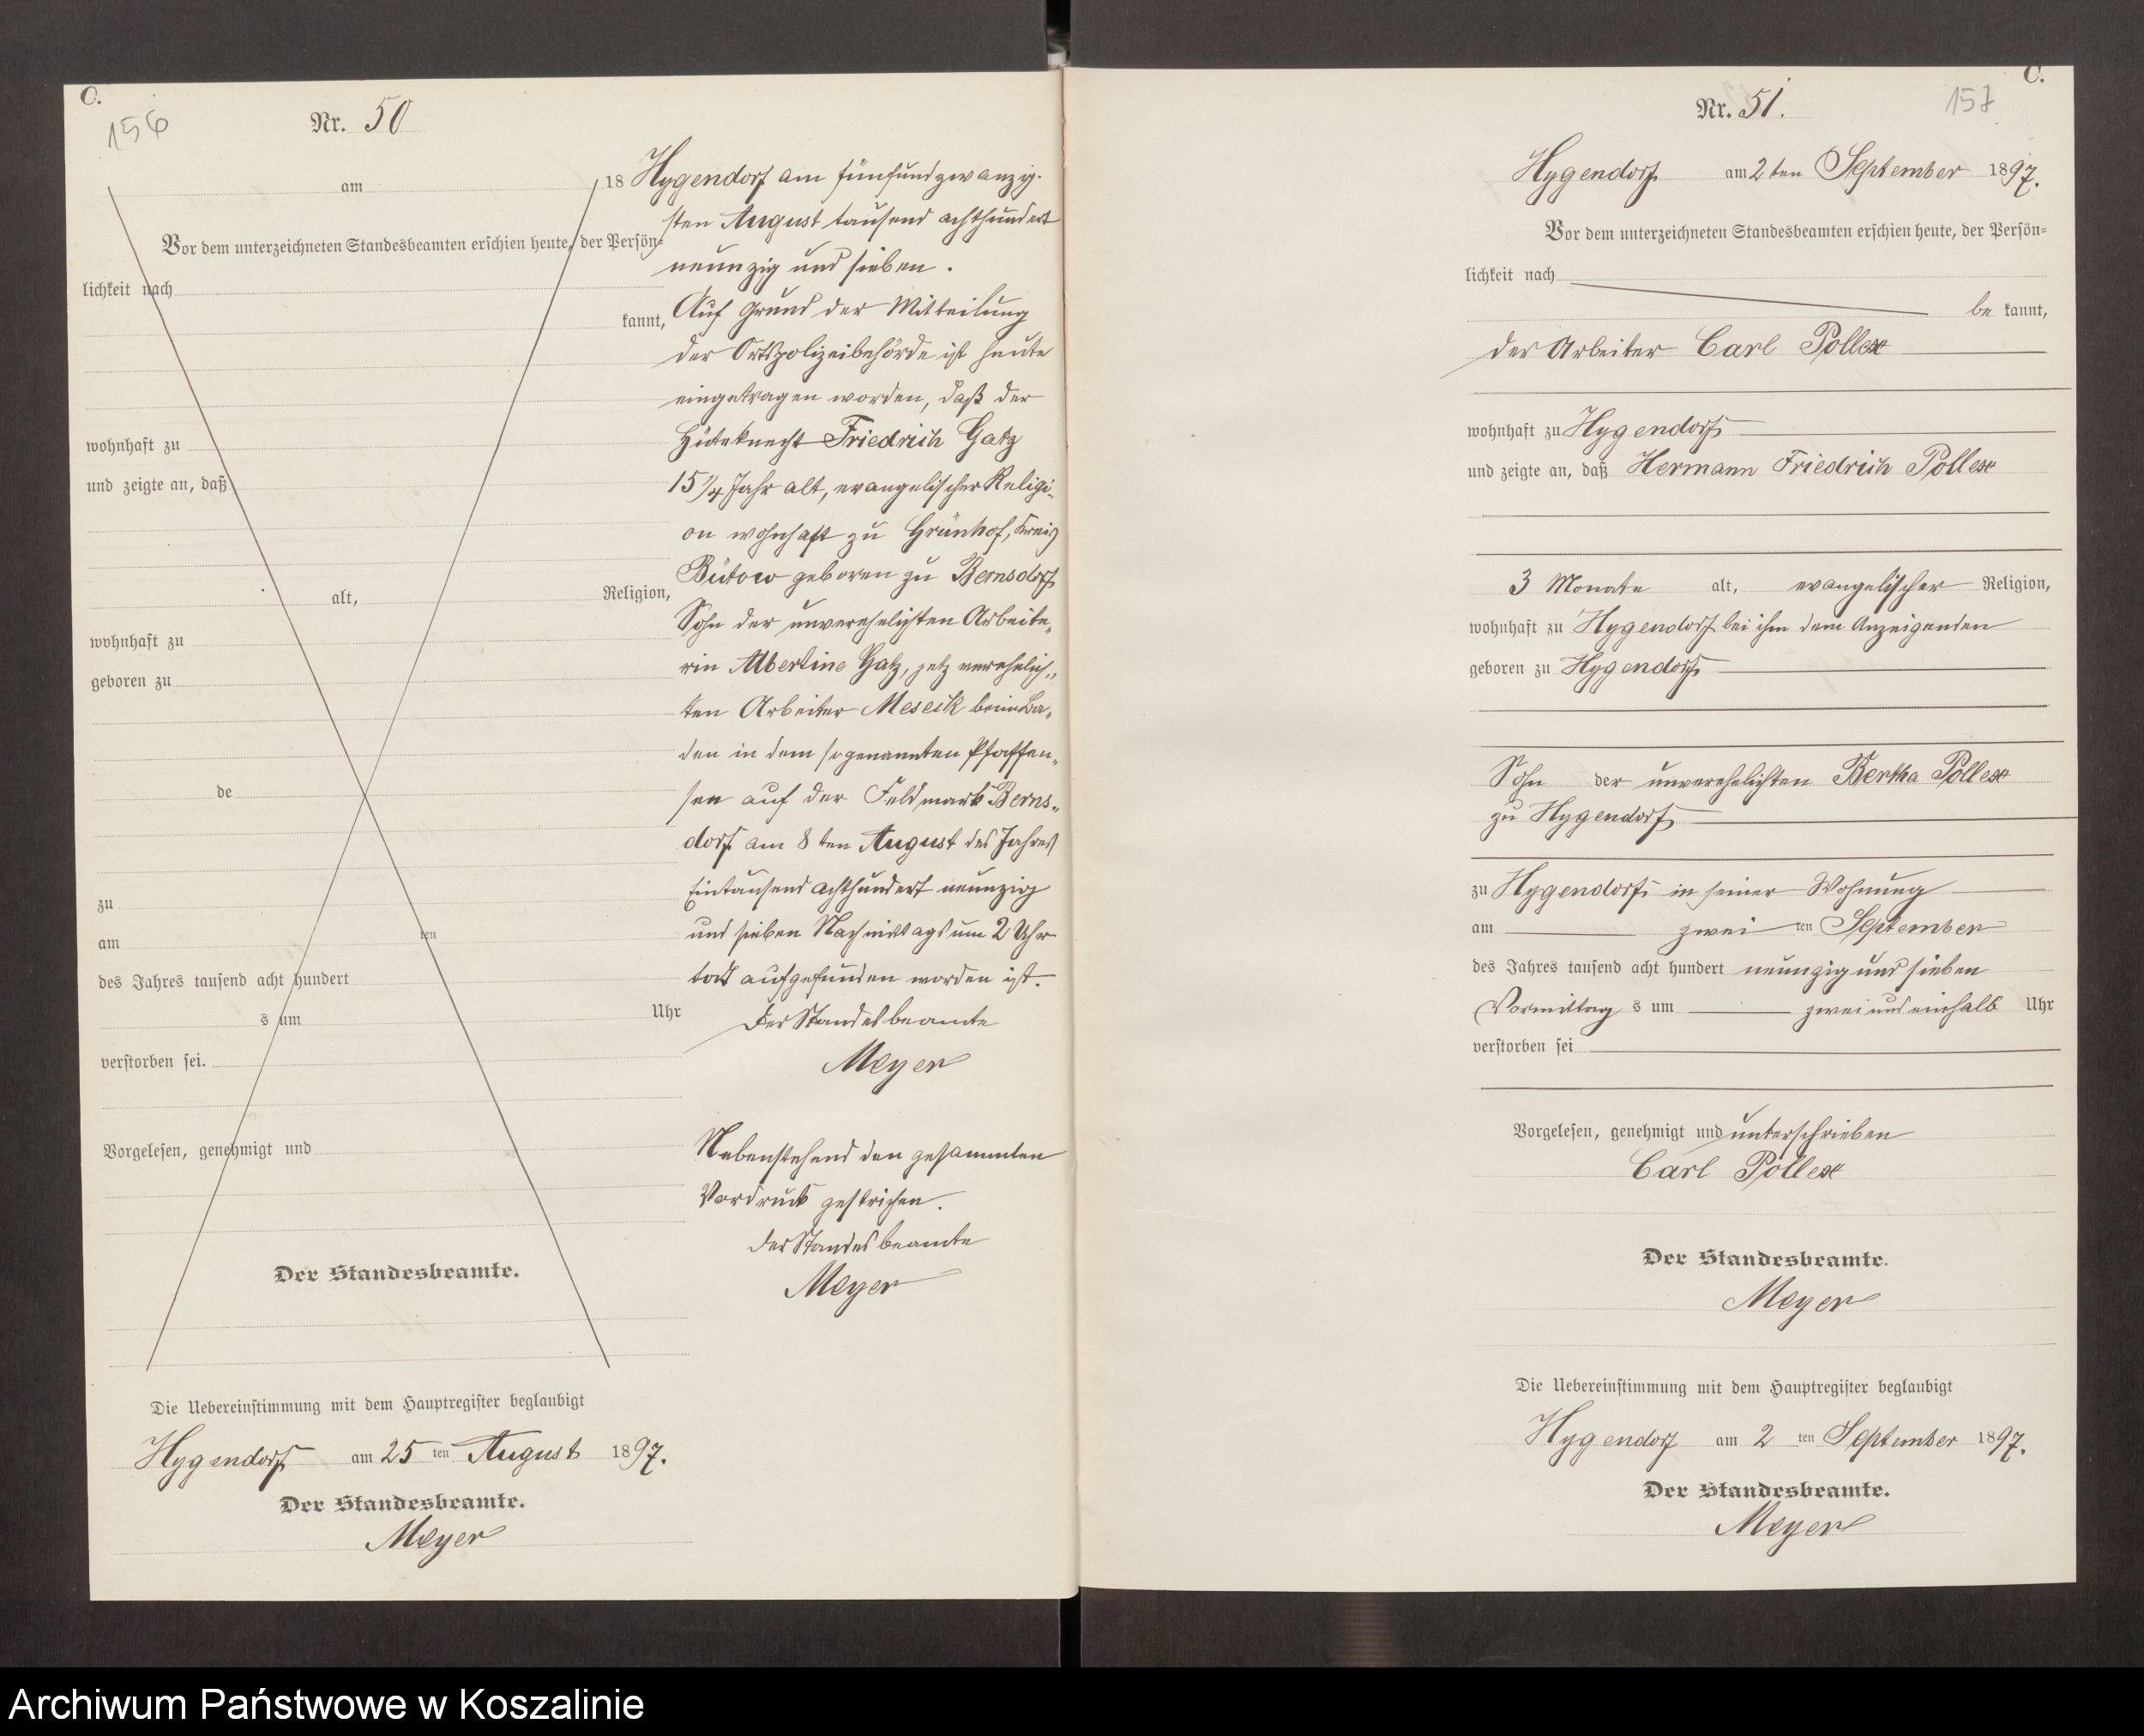 C.
156
Nr. 50
am 18
Vor dem unterzeichneten Standesbeamten erschien heute, der Persön-
lichkeit nach
kannt,
wohnhaft zu
und zeigte an, daß
alt, Religion,
wohnhaft zu
geboren zu
de
zu
am ten
des Jahres tausend acht hundert
s um Uhr
verstorben sei.
Vorgelesen, genehmigt und
Der Standesbeamte.
Hygendorf am fünfundzwanzig-
sten August tausend achthundert
neunzig und sieben.
Auf Grund der Mitteilung
der Ortspolizeibehörde ist heute
eingetragen worden, daß der
Hüteknecht Friedrich Gatz
15 1/4 Jahr alt, evangelischer Religi-
on wohnhaft zu Grünhof, Kreis
Bütow geboren zu Bernsdorf
Sohn der unverehelichten Arbeite-
rin Albertine Gatz, jetz verehelich-
ten Arbeiter Meseik beim Ba-
den in dem sogenannten Pfaffen-
see auf der Feldmark Berns-
dorf am 8 ten August des Jahres
Eintausend achthundert neunzig
und sieben Nachmittags um 2 Uhr
todt aufgefunden worden ist.
Der Standesbeamte
Meyer
Nebenstehend den gesammten
Vordruck gestrichen.
Der Standesbeamte
Meyer
Die Uebereinstimmung mit dem Hauptregister beglaubigt
Hygendorf am 25 ten August 1897.
Der Standesbeamte.
Meyer
C.
157
Nr. 51.
Hygendorf am 2 ten September 1897.
Vor dem unterzeichneten Standesbeamten erschien heute, der Persön-
lichkeit nach
be kannt,
der Arbeiter Carl Pollex
wohnhaft zu Hygendorf
und zeigte an, daß Hermann Friedrich Pollex
3 Monate alt, evangelischer Religion,
wohnhaft zu Hygendorf bei ihm dem Anzeigenden
geboren zu Hygendorf
Sohn der unverehelichten Bertha Pollex
zu Hygendorf
zu Hygendorf in seiner Wohnung
am zwei ten September
des Jahres tausend acht hundert neunzig und sieben
Vormittag s um zwei und einhalb Uhr
verstorben sei
Vorgelesen, genehmigt und unterschrieben
Carl Pollex
Der Standesbeamte.
Meyer
Die Uebereinstimmung mit dem Hauptregister beglaubigt
Hygendorf am 2 ten September 1897.
Der Standesbeamte.
Meyer
Archiwum Państwowe w Koszalinie